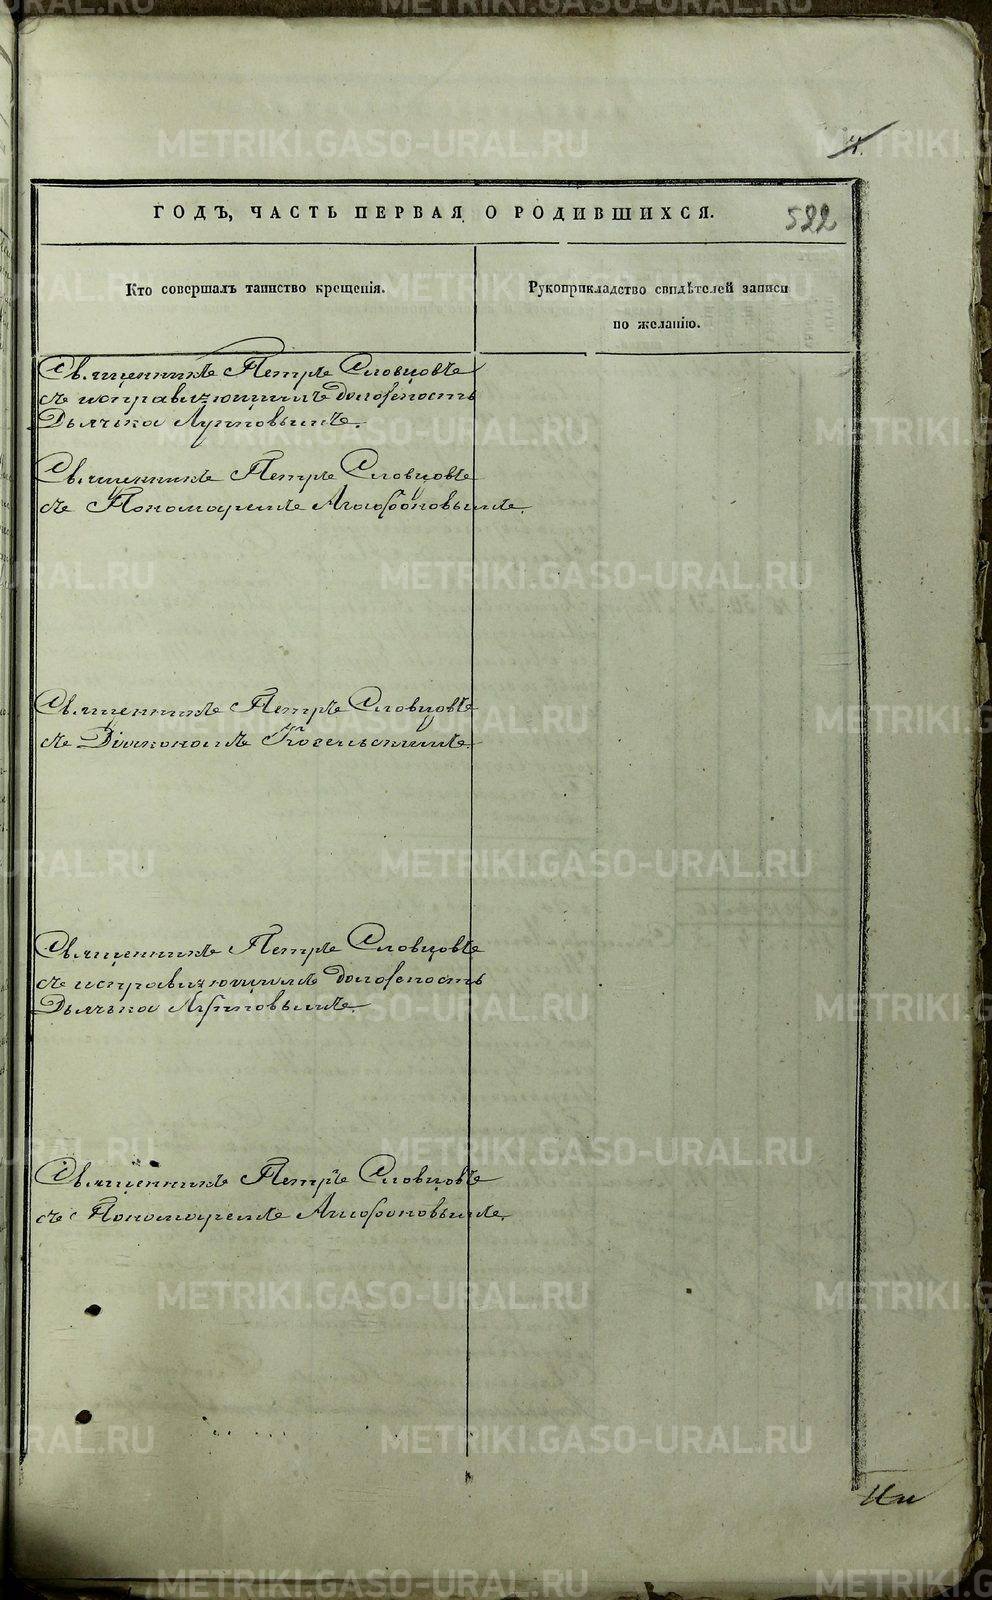 4.
ГОДЪ, ЧАСТЬ ПЕРВАЯ О РОДИВШИХСЯ.
522
Кто совершалъ таинство крещенія.
Рукоприкладство свидѣтелей записи
по желанію.
Священникъ Петръ Словцовъ
съ исправляющимъ должность
Дьячка Лупповымъ.
Священникъ Петръ Словцовъ
съ Пономаремъ Агафоновымъ.
Священникъ Петръ Словцовъ
съ Діакономъ Косельскимъ.
Священникъ Петръ Словцовъ
съ исправляющимъ должность
Дьячка Лупповымъ.
Священникъ Петръ Словцовъ
съ Пономаремъ Агафоновымъ.
METRIKI.GASO-URAL.RU